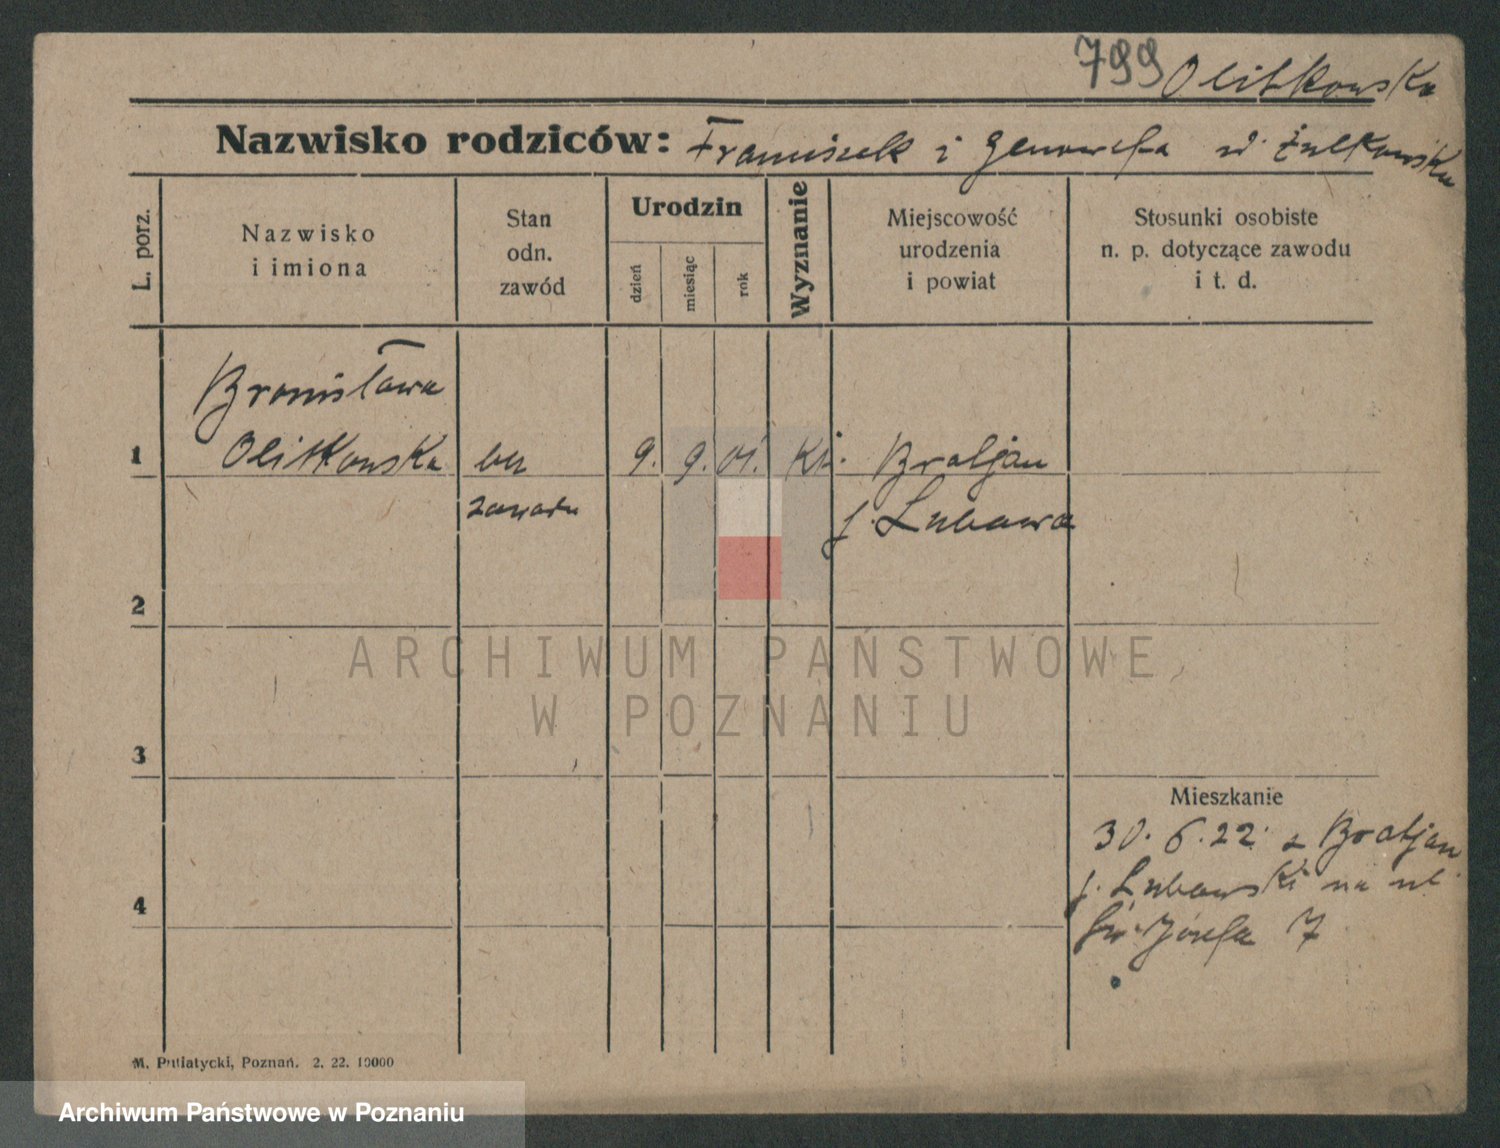 799 Olitkowska
Nazwisko rodziców: Franciszek i Genowefa z d. Żułkowska
L. porz.
Nazwisko
i imiona
Stan
odn.
zawód
Urodzin
dzień
miesiąc
rok
Wyznanie
Miejscowość
urodzenia
i powiat
Stosunki osobiste
n. p. dotyczące zawodu
i t. d.
Bronisława
1 Olitkowska bez 9. 9. 01. kt. Bratjan
zawodu p. Lubawa
2
3
Mieszkanie
30. 6. 22. z Bratjan
p. Lubawski na ul.
4
Św. Józefa 7
M. Putiatycki, Poznań. 2. 22. 10000
ARCHIWUM PAŃSTWOWE
W POZNANIU
Archiwum Państwowe w Poznaniu